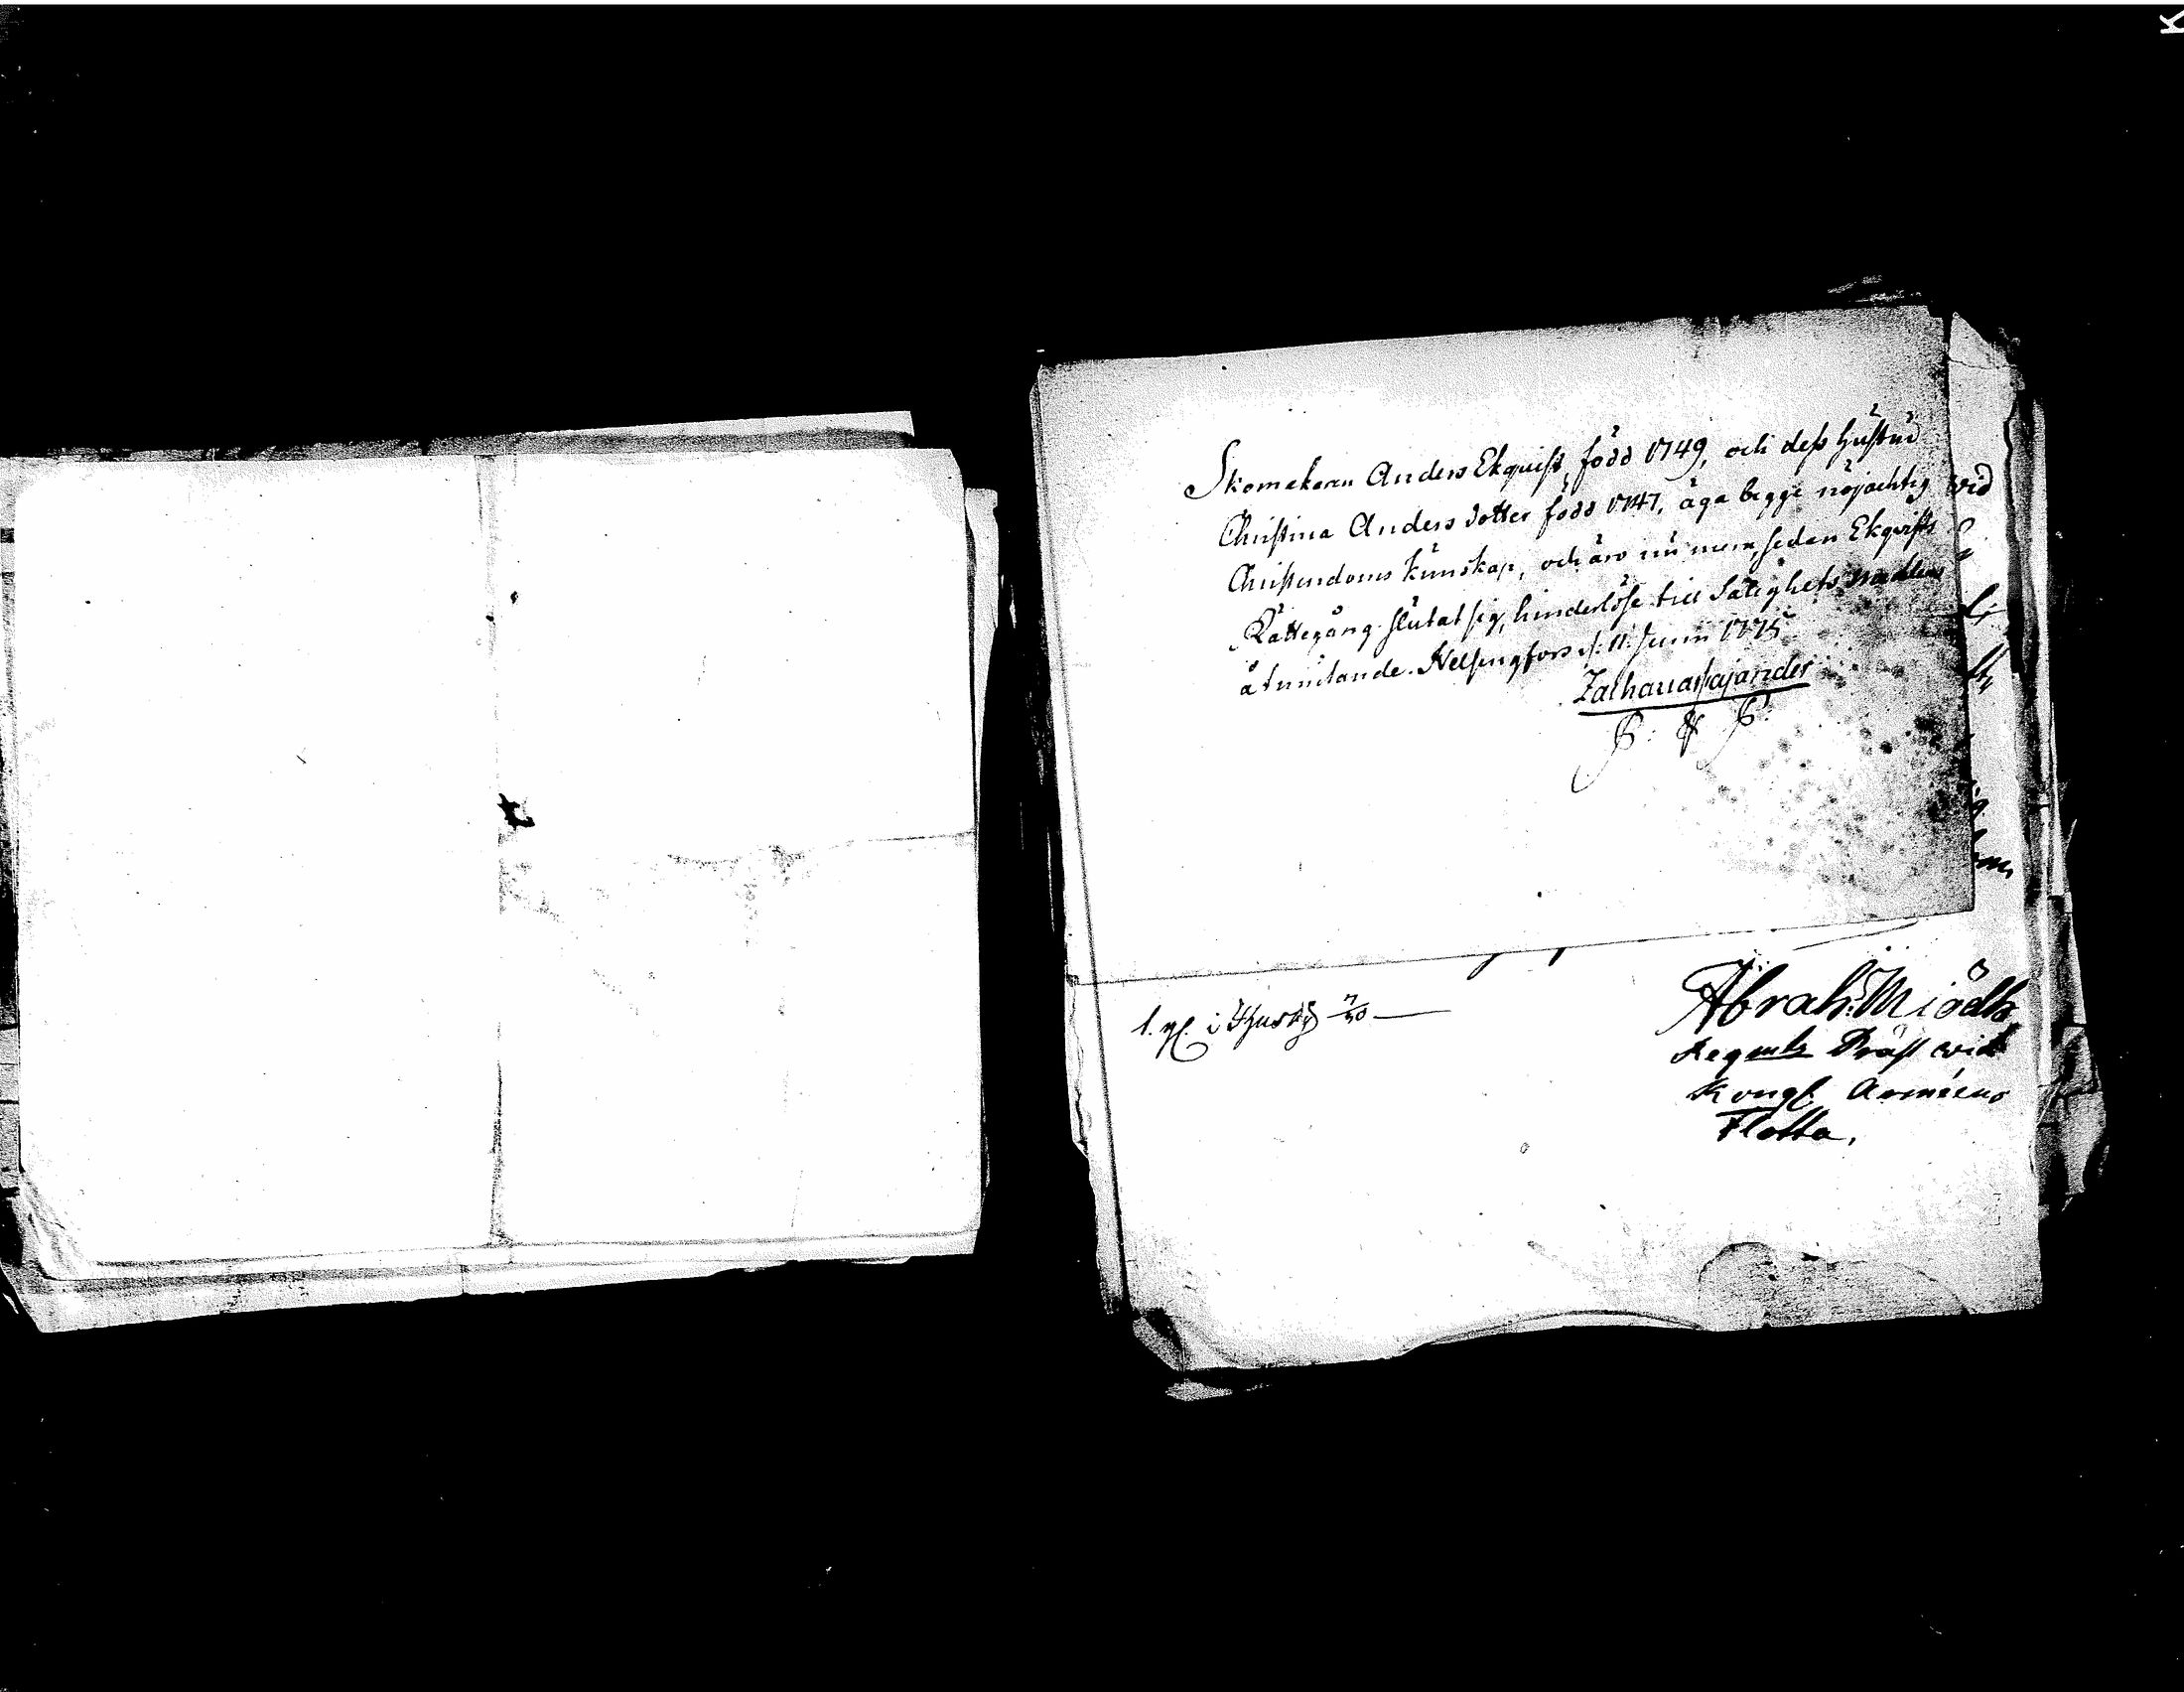 Skomakaren Anders Ekquist, född 1749, och dess hustru
Christina Anders dotter född 1747, äga begge nöjachtig
Christendoms kunskap, och äro nu mera, sedan Ekqvists
Rättegång slutat sig, hinderlöse till Salighets medlens
åtniutande. Helsingfors d: 11. Junii 1775
Zacharias Cajander
wid
1. i
Abrah: Miödh
Regmts Präst wid
Kongl Arméens
Flotta.